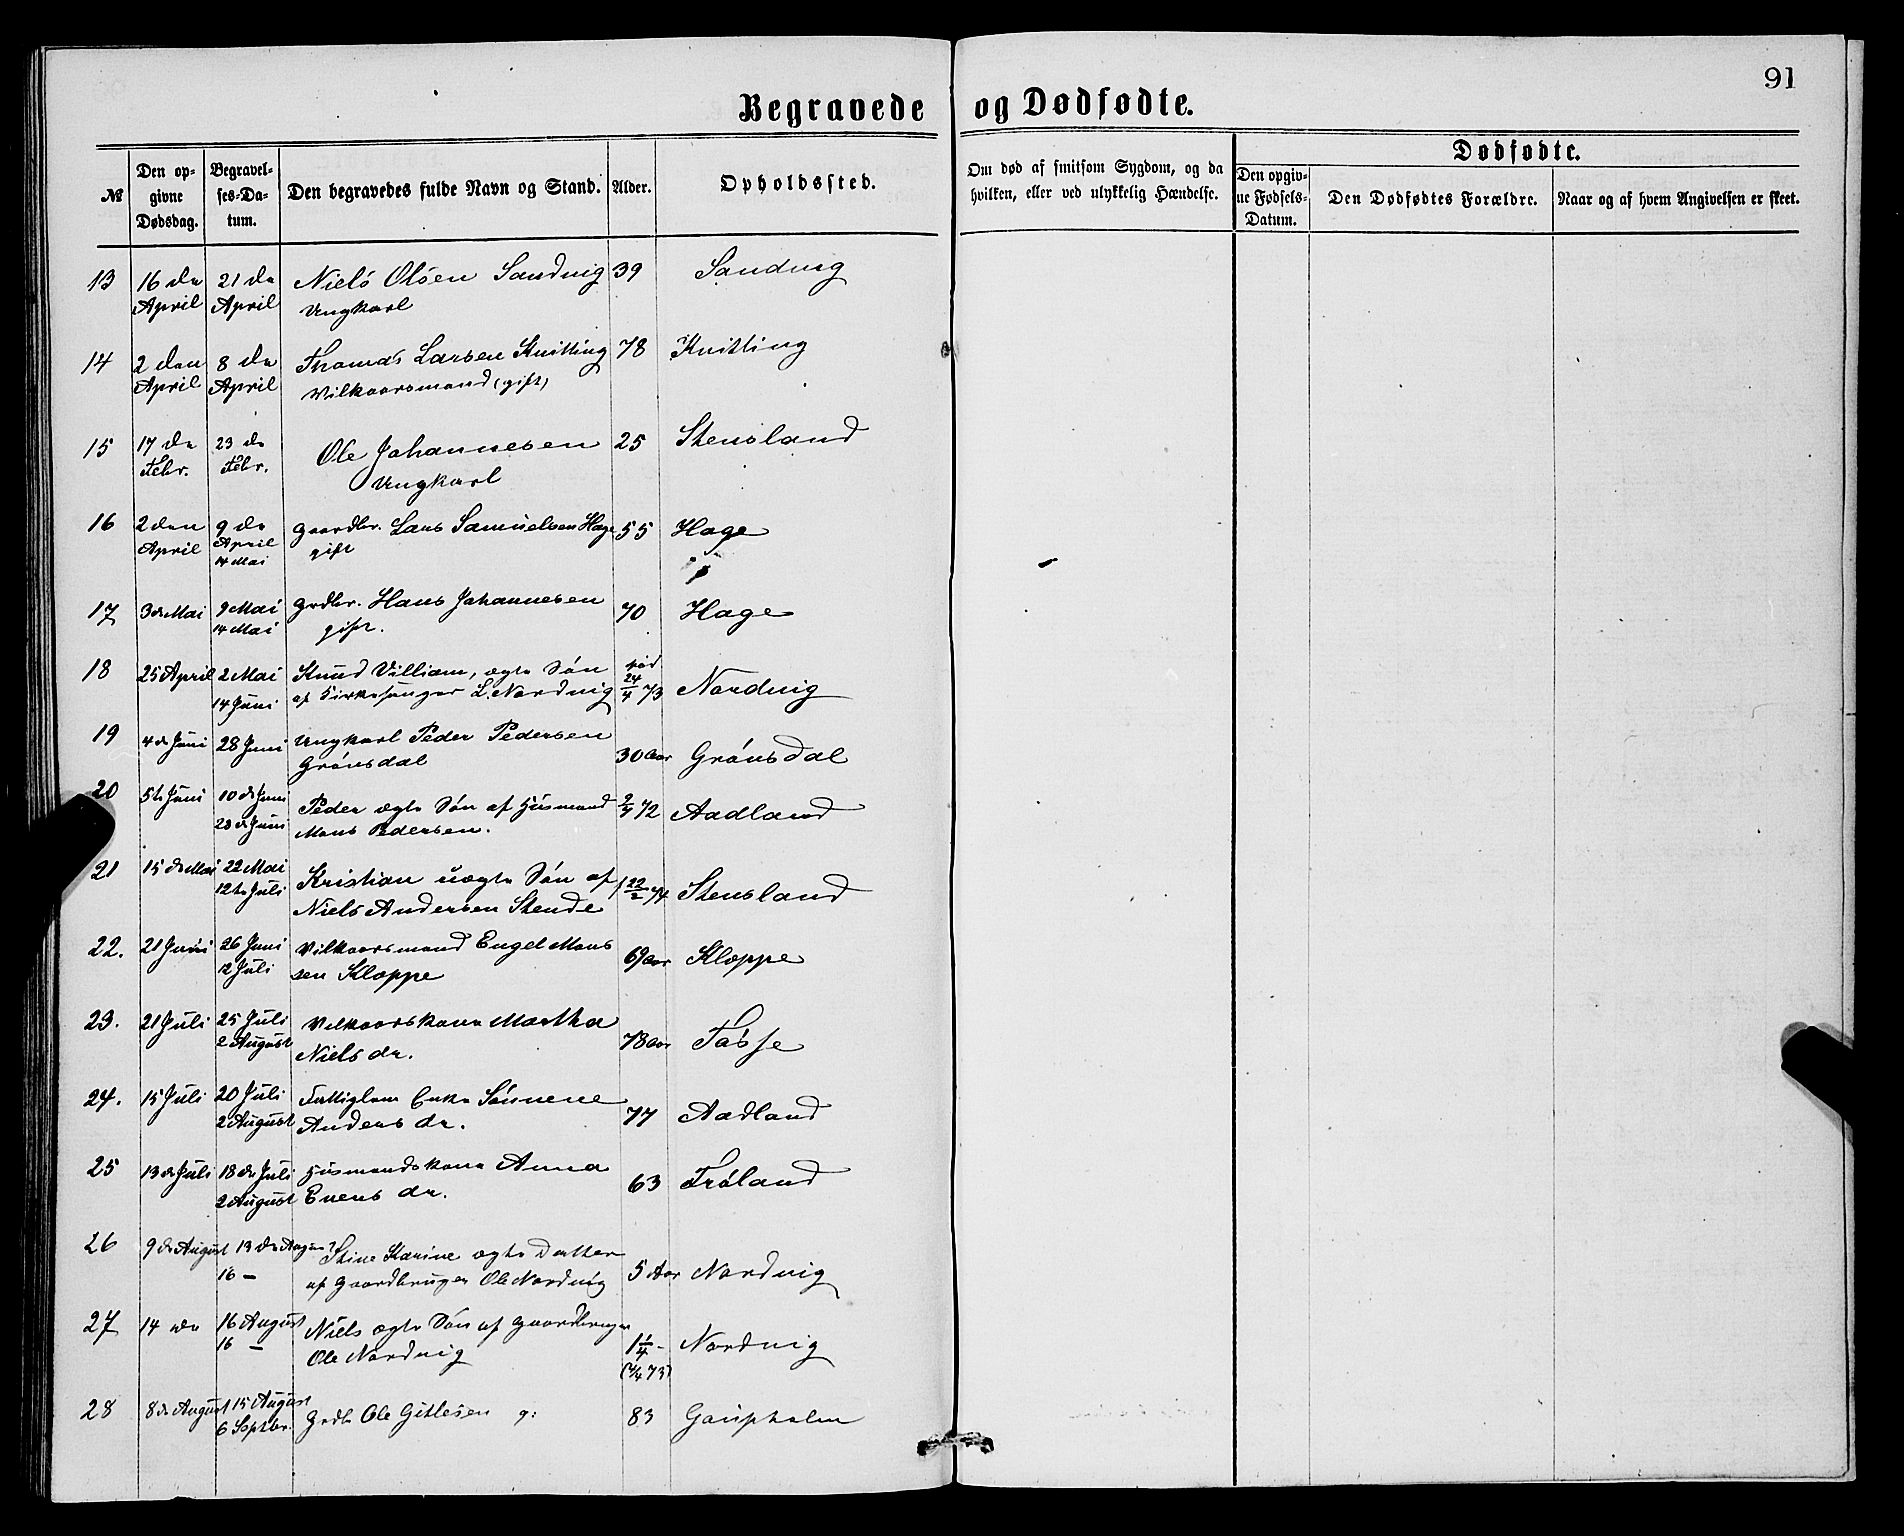 91
Begravede og Dødfødte.
№ Den opgivne Dødsdag. Begravelses-Datum. Den begravedes fulde Navn og Stand. Alder. Opholdssted. Om død af smitsom Sygdom, og da hvilken, eller ved ulykkelig Hændelse. Dødfødte. Den opgivne Fødsels-Datum. Den Dødfødtes Forældre. Naar og af hvem Angivelsen er skeet.
13 16 de 21 de Niels Olsen Sandvig 39 Sandvig
April April Ungkarl
14 2 den 8 de Thomas Larsen Kvitling 78 Kvitling
April April Vilkaarsmand (gift)
15 17 de 23 de Ole Johannesen 25 Stensland
Febr. Febr. Ungkarl
16 2 den 9 de Gaardbr. Lars Samuelsen Hage 55 Hage
April April gift
14 Mai
17 3 de Mai 9 Mai Grdbr. Hans Johannesen 70 Hage
14 Mai gift.
18 25 April 2 Mai Knud Villiam, ægte Søn fød 24/4 73 Nordvig
14 Juni af Kirkesanger L. Nordvig
19 4 de Juni 28 Juni Ungkarl Peder Pedersen 30 Aar Grønsdal
Grønsdal
20 5te Juni 10 de Juni Peder ægte Søn af Husmand 9/4 72 Aadland
28 de Juni Mons Pedersen.
21 15 de Mai 22 Mai Kristian uægte Søn af 22/2 74 Stensland
12te Juli Niels Andersen Stende
22. 21 Juni 26 Juni Vilkaarsmand Engel Mons 69 Aar Kloppe
12 Juli sen Kloppe
23. 21 Juli 25 Juli Vilkaarskone Martha 78 Aar Tøsse
2 August Niels dr.
24. 15 Juli 20 Juli Fattiglem Enke Sønneve 77 Aadland
2 August Anders dr.
25 13 de Juli 18 de Juli Husmandskone Anna 63 Frøland
2 August Evens dr.
26 9 de August 13 de August Stine Karine ægte Datter 5 Aar Nordvig
16 — af Gaardbruger Ole Nordvig
27 14 de 16 August Niels ægte Søn af Gaardbruger 1 1/4 - Nordvig
16 — Ole Nordvig
28 8 de August 15 August Grdb Ole Gitlesen g: 83 Gaupholm
6 Septbr.